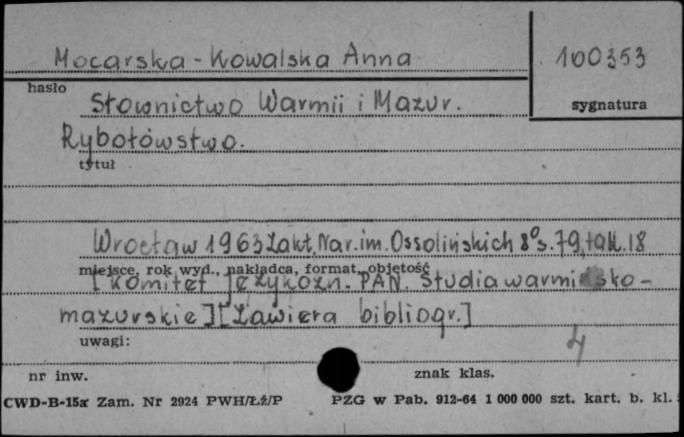 Mocarska-Kowalska Anna
100353
hasło
sygnatura
Słownictwo Warmii i Mazur.
Rybołówstwo.
tytuł
Wrocław 1963 Zakł. Nar. im. Ossolińskich 8° s. 79, tabl. 18
miejsce, rok wyd., nakładca, format, objętość
[Komitet Językozn. PAN. Studia warmińsko-
mazurskie] [Zawiera bibliogr.]
uwagi:
4
nr inw.
znak klas.
CWD-B-15a Zam. Nr 2924 PWH/Łż/P
PZG w Pab. 912-64 1 000 000 szt. kart. b. kl.